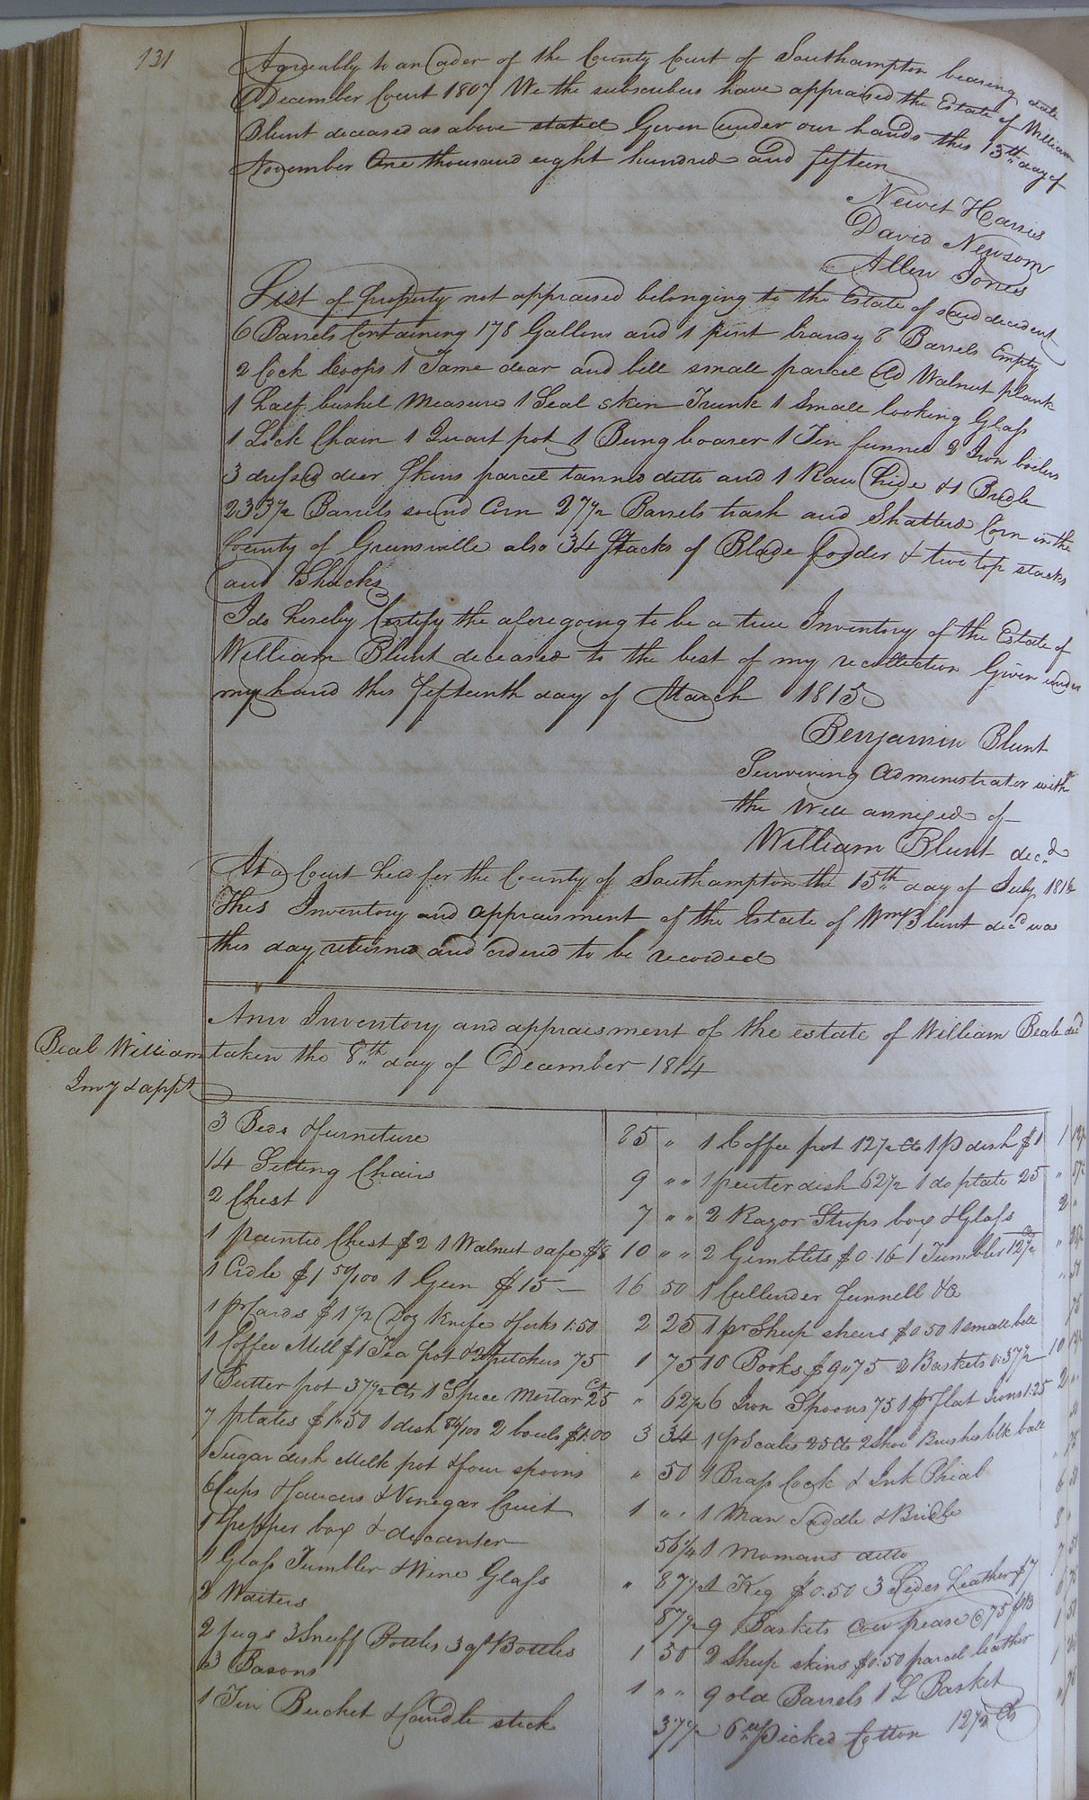 131
Agreeably to an order of the County Court of Southampton bearing date
December Court 1807 We the subscribers have appraised the Estate of William
Blunt deceased as above stated Given under our hands this 13th day of
November One thousand eight hundred and fifteen
Newit Harris
David Newsom
Allen Jones
List of property not appraised belonging to the Estate of said decedent
6 Barrels Containing 178 Gallons and 1 pint brandy 8 Barrels Empty
2 Cock Coops 1 Tame dear and bell small parcel old Walnut plank
1 half bushel Measure 1 Seal skin Trunk 1 Small looking Glass
1 Lock Chain 1 Quart pot 1 Bung boarer 1 Tin funnel 2 Iron boilers
3 dressed dear Skins parcel tanned ditto and 1 Raw hide & 1 Bridle
233½ Barrels sound Corn 27½ Barrels trash and Shattered Corn in the
County of Greensville also 34 Stacks of Blade fodder & two top stacks
and Shucks
I do hereby Certify the aforegoing to be a true Inventory of the Estate of
William Blunt deceased to the best of my recollection Given under
my hand this fifteenth day of March 1815
Benjamin Blunt
Surviving Administrator with
the Will annexed of
William Blunt decd
At a Court held for the County of Southampton the 15th day of July 1816
This Inventory and appraisment of the Estate of Wm Blunt decd was
this day returned and ordered to be recorded
Beal William
Invy & appt
Ann Inventory and appraisment of the estate of William Beale decd
taken the 8th day of December 1814
3 Beds & furniture 75 " 1 Coffee pot 12½ Cts 1 P dish $1
14 Setting Chairs 9 " " 1 peuter dish 62½ 1 do plate 25
2 Chest 7 " " 2 Razor Strips box & Glass
1 painted Chest $2 1 Walnut safe $8 10 " " 2 Gimblets $0.16 1 Tumbler 12½ Cts
1 Cradle $1 50/100 1 Gun $15 — 16 50 1 Cullender funnell &c
1 pr Cards $1 ½ Doz Knife & forks 1.50 2 25 1 pr Sheep shears $0.50 1 small bell
1 Coffee Mill $1 Tea pot & 2 pitchers 75 1 75 10 Books $9.75 2 Baskets 0.37½
1 Butter pot 37½ Cts 1 Spice Mortar 25 Ct " 62½ 6 Iron Spoons 75 1 pr flat Irons 1.25
7 plates $1.50 1 dish 84/100 2 bowls $1.00 3 34 1 pr Scales 25 Cts 2 Shoe Brushes blk ball
1 Sugar dish Milk pot & four spoons " 50 1 Brass Cock & Ink Phial
6 Cups & Saucers & Vinegar Cruit 1 " " 1 Man Saddle & Bridle
1 Pepper box & decanter 56¼ 1 Womans ditto
1 Glass Tumbler & Wine Glass " 87½ 1 Keg $0.50 3 Sides Leather $7
2 Waiters 87½ 9 Baskets cow pease @ 75
2 jugs 3 Snuff Bottles 3 qt Bottles 1 50 2 Sheep skins $0.50 parcel leather
3 Basons 1 " " 9 old Barrels 1 L Basket
1 Tin Bucket & Candle stick 37½ 6 lb Picked Cotton 12½ Cts